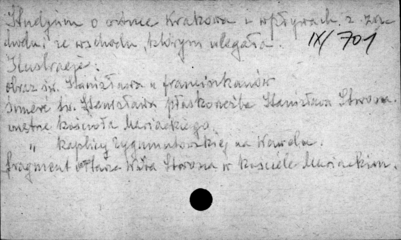 Studjum o sztuce Krakowa i wpływach z za-
chodu i ze wschodu, którym ulegała. IX/701
Ilustracje:
obraz św. Stanisława u franciszkanów
śmierć św. Stanisława płaskorzeźba Stanisława Stwosza.
wnętrze kościoła Mariackiego.
" kaplicy Zygmuntowskiej na Wawelu.
fragment ołtarza Wita Stwosza w kościele Mariackim.